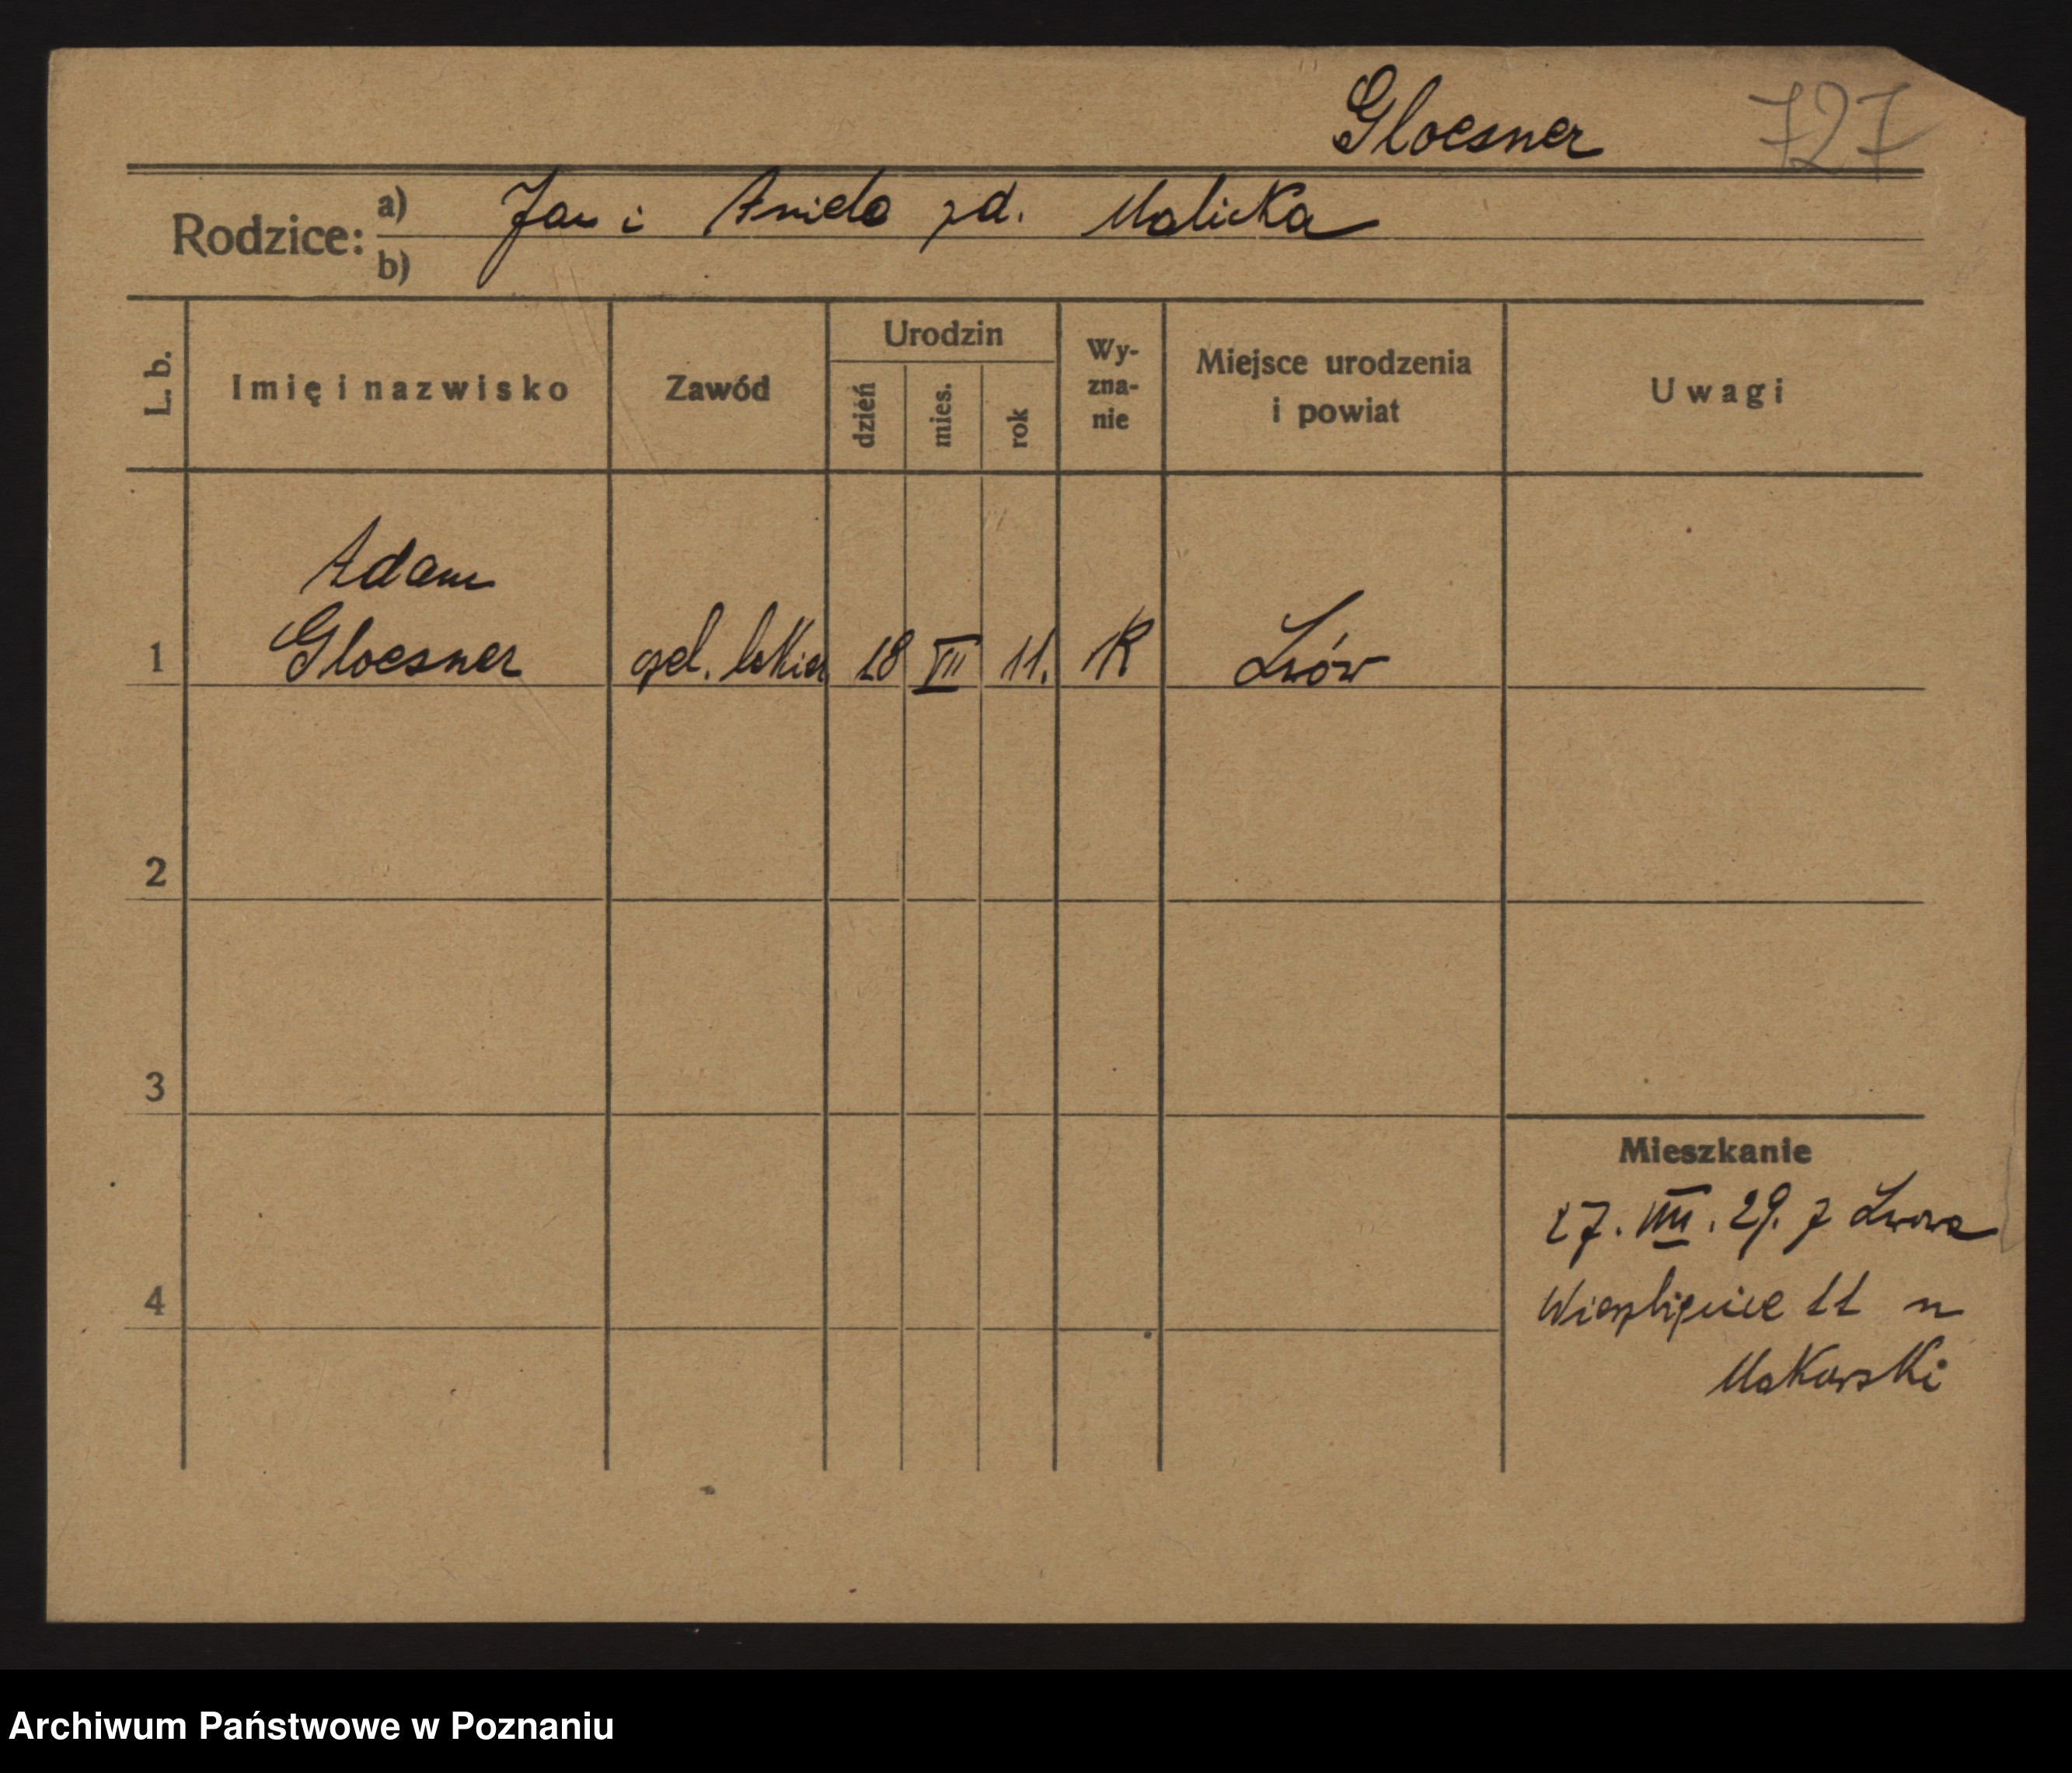 Gloesner 727
Rodzice: a) Jan i Aniela zd. Malicka
b)
L. b.
Imię i nazwisko
Zawód
Urodzin
dzień
mies.
rok
Wy-
zna-
nie
Miejsce urodzenia
i powiat
Uwagi
Adam
1 Gloesner czel. lakier 18 VII 11. rk Lwów
2
3
Mieszkanie
27. VIII. 29. z Lwowa
4 11 u
Makowski
Archiwum Państwowe w Poznaniu